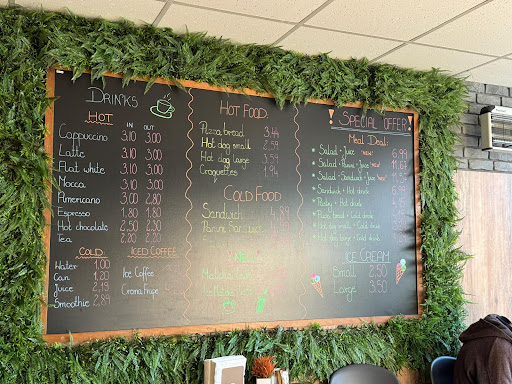 DRINKS
HOT IN OUT
Cappuccino 3.10 3.00
Latte 3.10 3.00
Flat white 3.10 3.00
Mocca 3.10 3.00
Americano 3.00 2.80
Espresso 1.80 1.80
Hot chocolate 2.50 2.30
Tea 2.20 2.20
COLD
Water 1.00
Can 1.20
Juice 2.19
Smoothie 2.89
ICED COFFEE
Ice Coffee
Crema
HOT FOOD
Pizza bread 3.44
Hot dog small 2.59
Hot dog large 3.59
Croquettes 1.94
COLD FOOD
Sandwich 4.89
Panini Sandwich
SPECIAL OFFER
Meal Deal:
Salad + Juice 6.99
Salad + Panini + Juice
Salad + Sandwich + Juice
Sandwich + Hot drink
Pastry + Hot drink
Pizza bread + Cold drink
Hot dog small + Cold drink
Hot dog large + Cold drink
ICE CREAM
Small 2.50
Large 3.50